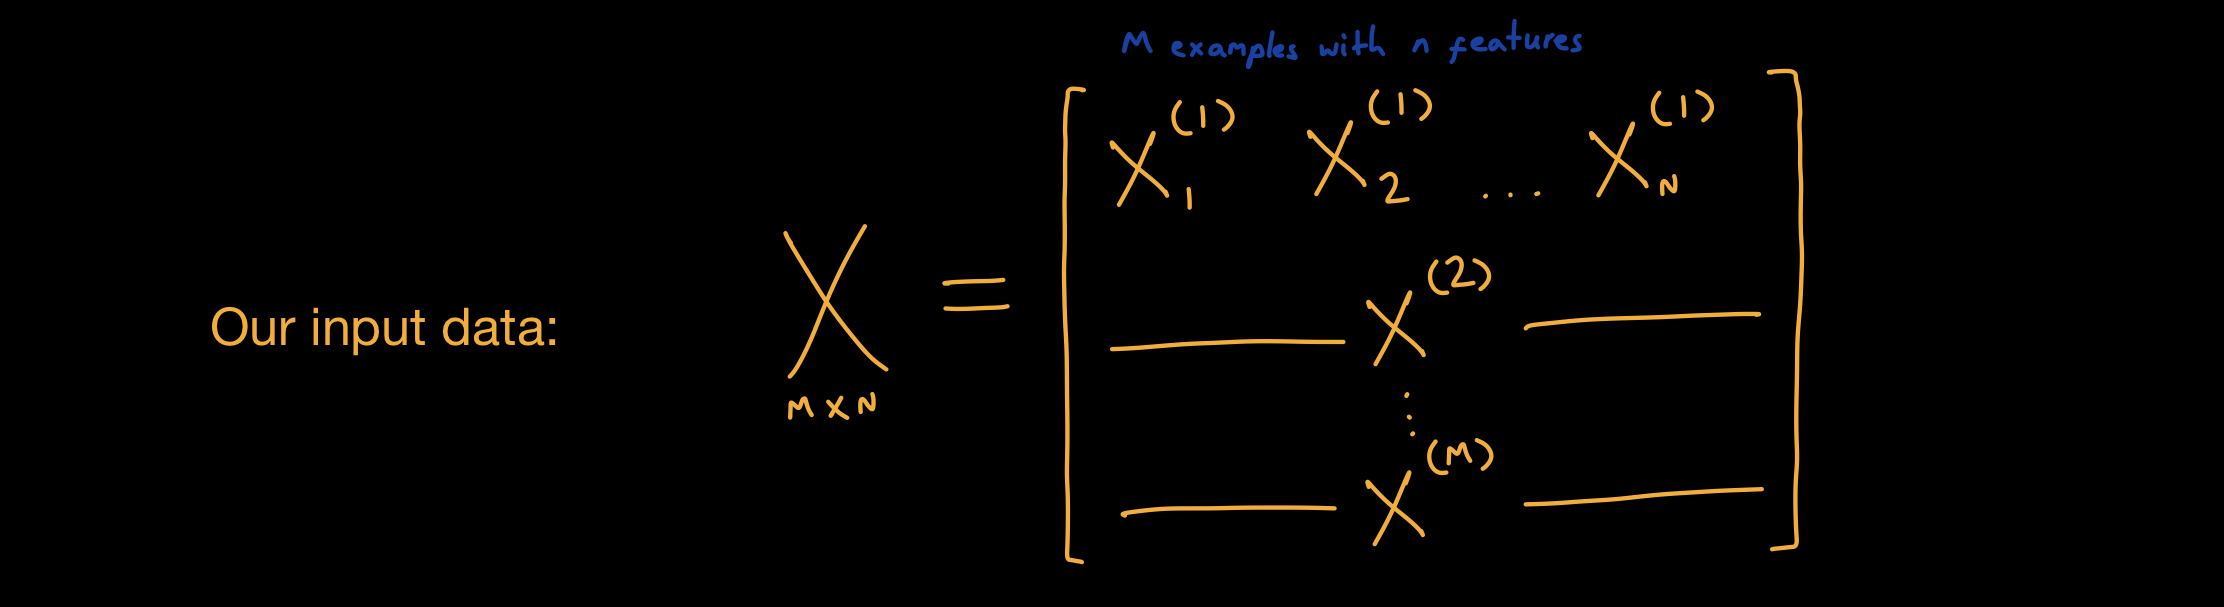 M examples with n features
Our input data:
X = [ X₁⁽¹⁾ X₂⁽¹⁾ ... Xₙ⁽¹⁾
— X⁽²⁾ —
⋮
— X⁽ᴹ⁾ — ]
M×N